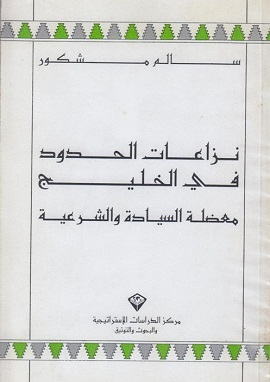 سالم مشكور
نزاعات الحدود
في الخليج
معضلة السيادة والشرعية
مركز الدراسات الإستراتيجية
والبحوث والتوثيق